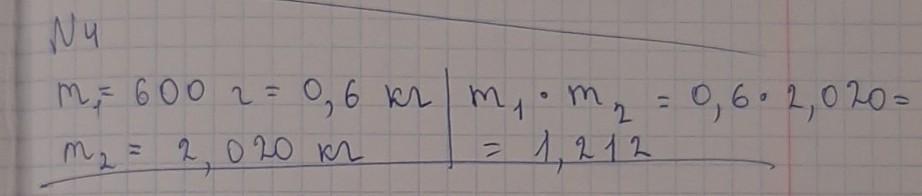 N4
m₁ = 600 г = 0,6 кг | m₁ · m₂ = 0,6 · 2,020 =
m₂ = 2,020 кг | = 1,212